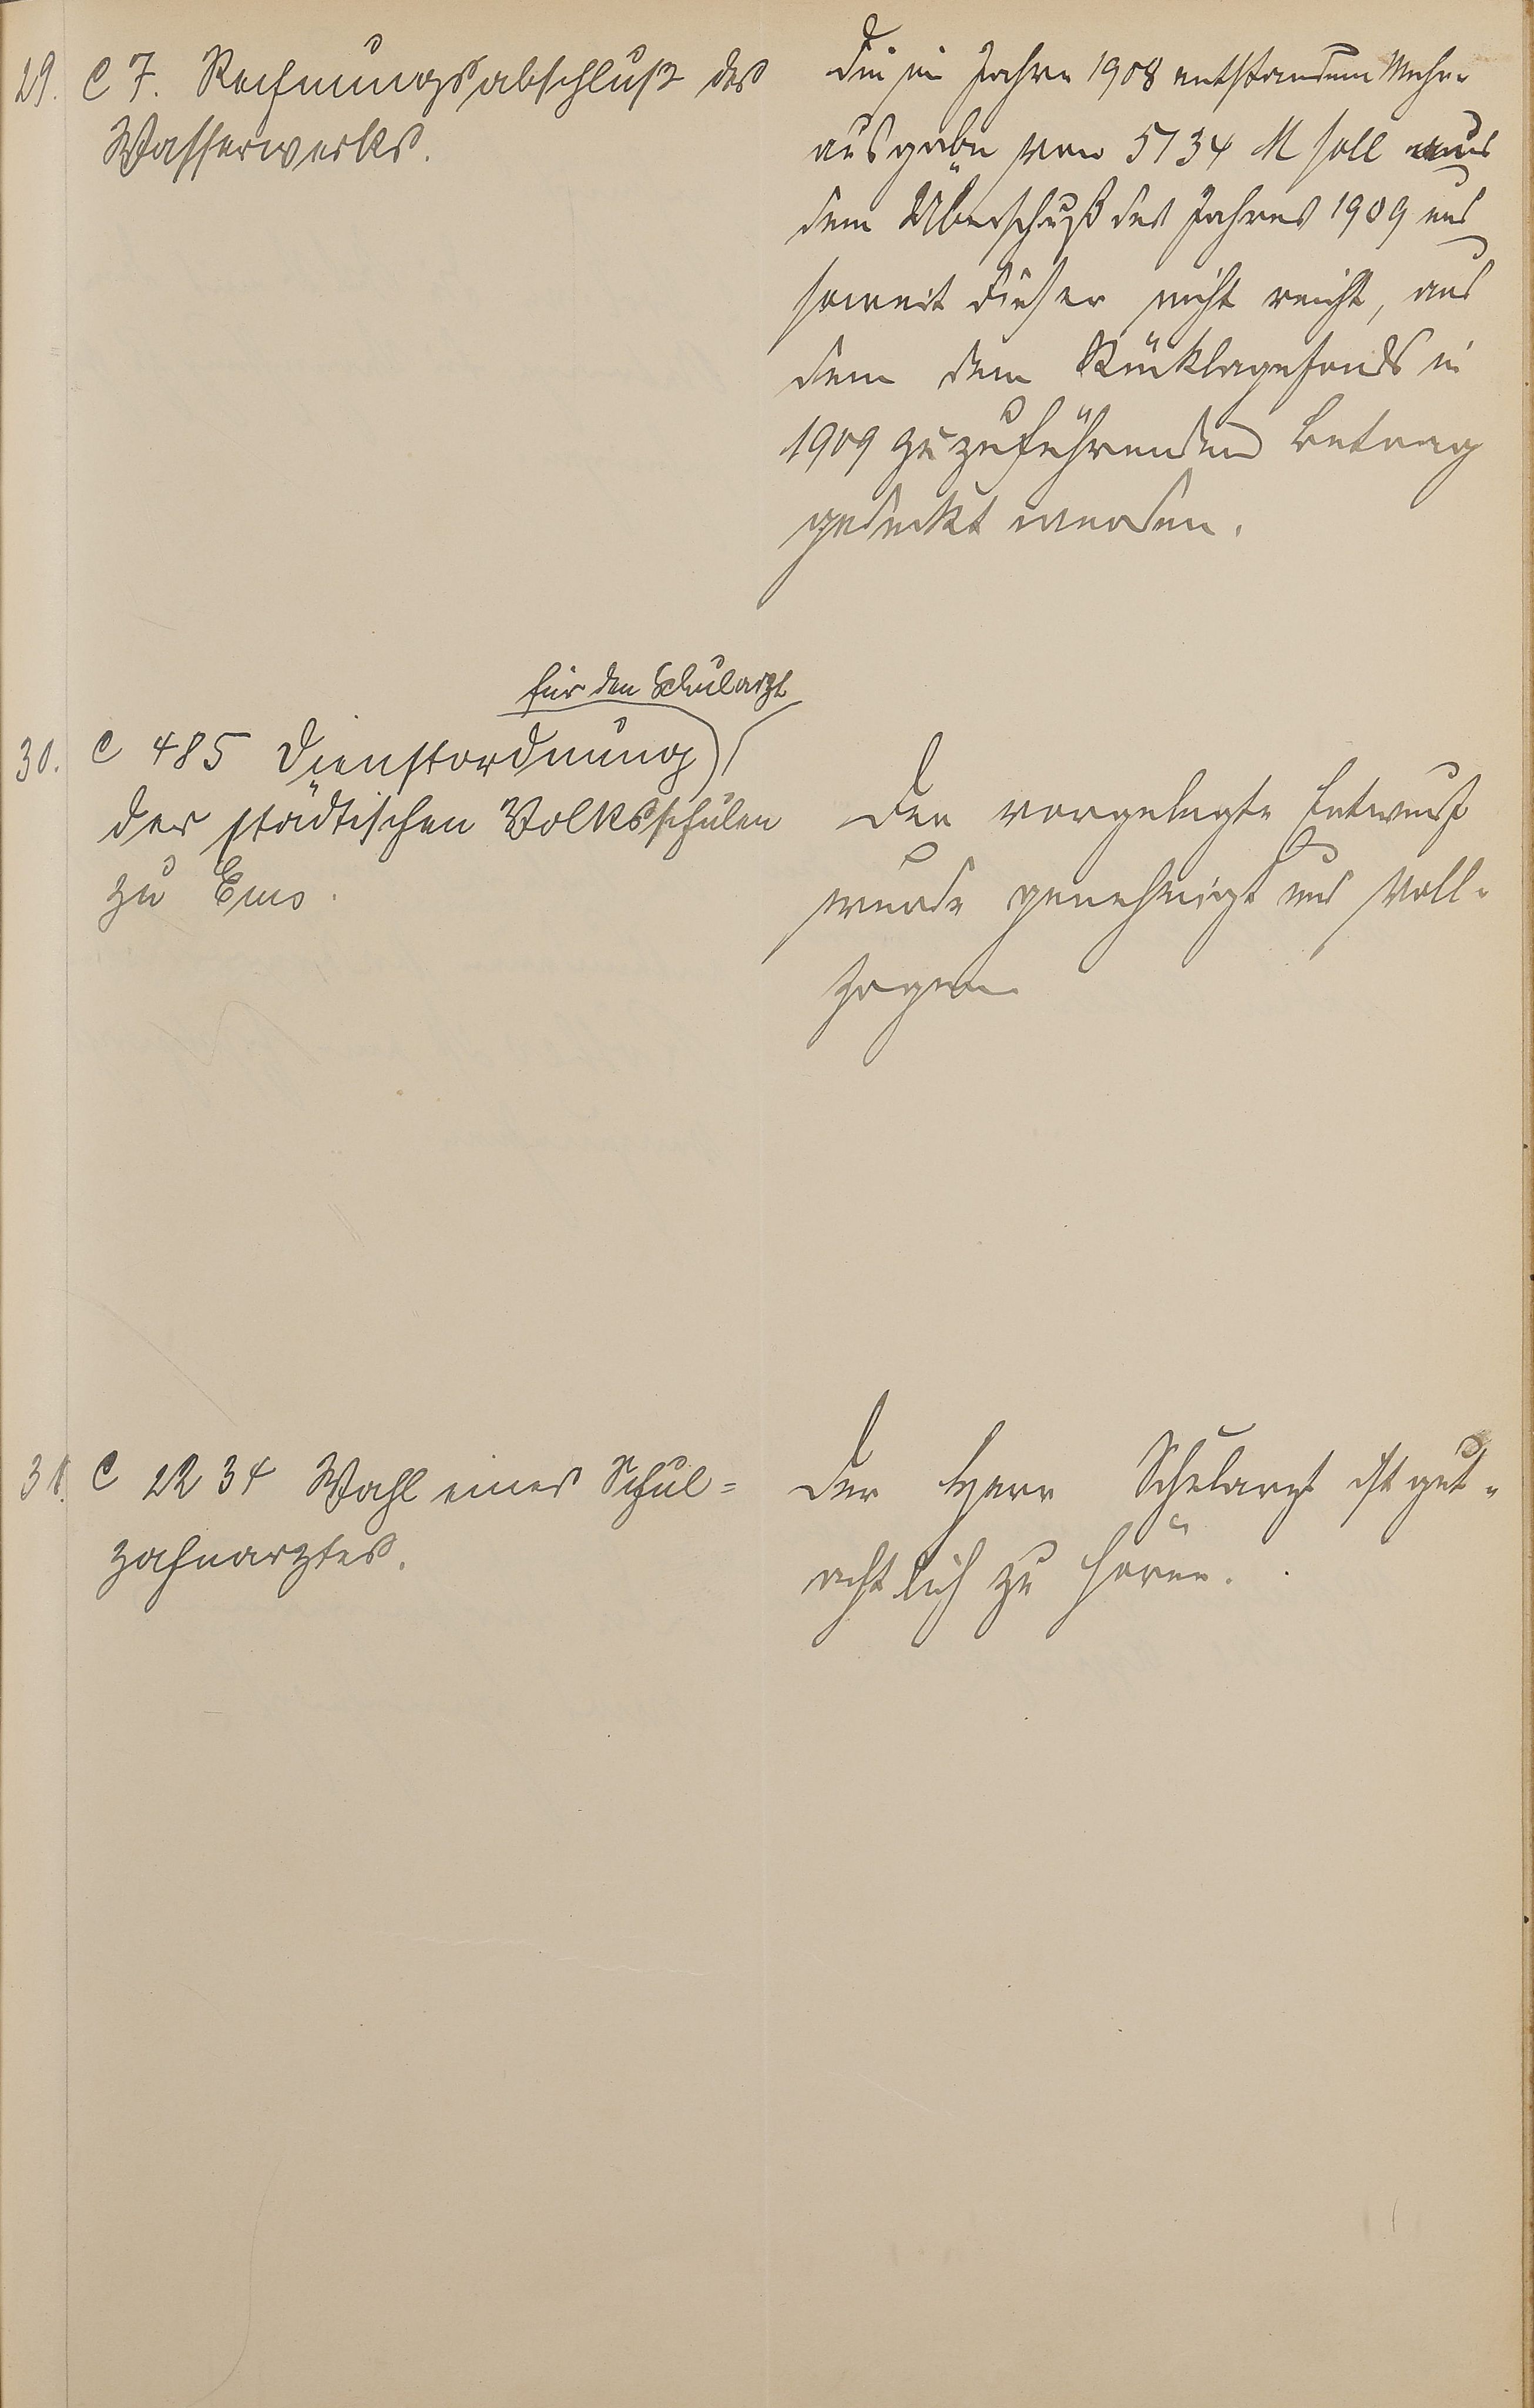 29. C 7. Rechnungsabschluß des
Wasserwerks.
Die im Jahre 1908 entstandene Mehr-
ausgabe von 5134 M soll aus
dem Überschuß des Jahres 1909 und
soweit dieser nicht reicht, aus
dem dem Rücklagefonds in
1909 zuzuführenden Betrag
gedeckt werden.
für den Schularzt
30. C 485 Dienstordnung
der städtischen Volksschulen
zu Ems.
Der vorgelegte Entwurf
wurde genehmigt und voll-
zogen
31. C 2234 Wahl eines Schul=
zahnarztes.
Der Herr Schularzt ist gut-
achtlich zu hören.